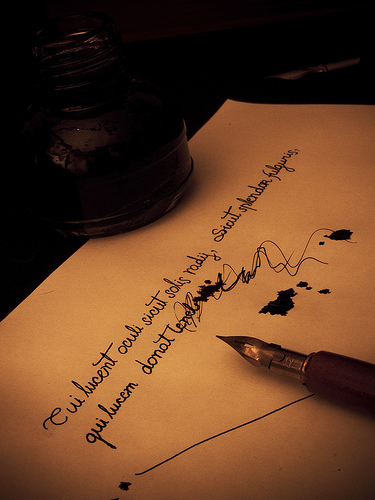 Tui lucent oculi sicut solis radij, sicut splendor fulguris,
qui lucem donat